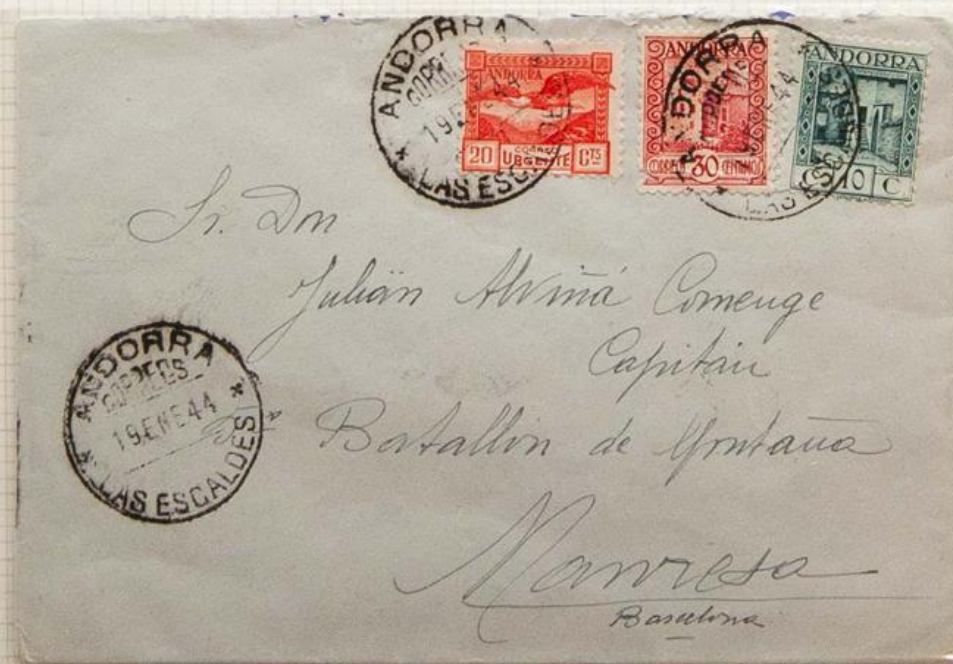 ANDORRA
CORREOS
19 ENE 44
LAS ESCALDES
ANDORRA
20 CORREO URGENTE CTS
ANDORRA
CORREOS 30 CENTIMOS
ANDORRA
CORREOS
ENE 44
LAS ESC
ANDORRA
C 10 C
Sr. Don
Julián Alviñá Comenge
Capitán
Batallón de Montaña
Manresa
Barcelona
ANDORRA
CORREOS
19 ENE 44
LAS ESCALDES